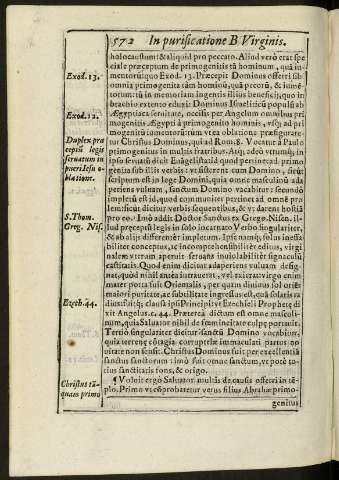 572 In purificatione B Virginis.
holocaustum: & aliquid pro peccato. Aliud verò erat spe
ciale præceptum de primogenitis tā hominum, quā in-
mentorū quo Exod. 13. Præcepit Dominus offerri sibi
omnia primogenita tàm hominū, quā pecorū, & iumē-
torum: tū in memoriam ingentis illius beneficij, quo in
brachio extento eduxit Dominus Israeliticū populū ab
Ægyptiaca seruitute, occisis per Angelum omnibus pri
mogenitis Ægypti à primogenito hominis, vsq; ad pri
mogenitū iumentorū: tùm vt ea oblatione præfigurare-
tur Christus Dominus, qui ad Rom. 8. Vocatur à Paulo
primogenitus in multis fratribus. Atq; adeò vtrumq; in
ipso seruatū dicit Euāgelista: id quod pertinet ad primo
genita sub illis verbis: vt sisterent eum Domino, sicut
scriptum est in lege Domini, quia omne masculinū ada
periens vuluam, sanctum Domino vocabitur: secundò
impletū est id, quod communiter pertinet ad omnē pro
lem: sicut dicitur verbis sequentibus, & vt darent hostiā
pro eo. Imò addit Doctor Sanctus ex Grego. Nisen. il-
lud præceptū legis in solo incarnato Verbo singulariter,
& ab alijs differenter impletum. Ipse namq; solus ineffa
biliter conceptus, ac incomprehensibiliter editus, virgi
nalem vterum aperuit seruans inuiolabiliter signaculū
castitatis. Quod enim dicitur adaperiens vuluam desig-
nat, quòd nihil anteà intrauerit, vel exierit: virgo enim
mater porta fuit Orientalis, per quam diuinus sol oriēs
maiori puritate, ac subtilitate ingressus est, quā solaris ra
dius: fuitq; clausa ipsi Principi vt Ezechieli Prophetę di
xit Angelus. c. 44. Prætereà dictum est omne masculi-
num, quia Saluator nihil de feminitate culpę portauit.
Tertiò singulariter dicitur sanctū Domino vocabitur,
quia terrenę cōtagia corruptelæ immaculati partus no
uitate non sensit. Christus Dominus fuit per excellentiā
sanctus sanctorum: imò fuit omne sanctum, vt potè to-
tius sanctitatis fons, & origo.
¶ Voluit ergò Saluator multis de causis offerri in tē-
plo. Primo vt cōprobaretur verus filius Abrahæ primo-
genitus
Exod. 13.
Exod. 12.
Duplex præ
ceptū legis
seruatum in
pueri Iesu o-
blatione.
S. Thom.
Greg. Nis.
Ezech. 44.
Christus tā-
quam primo